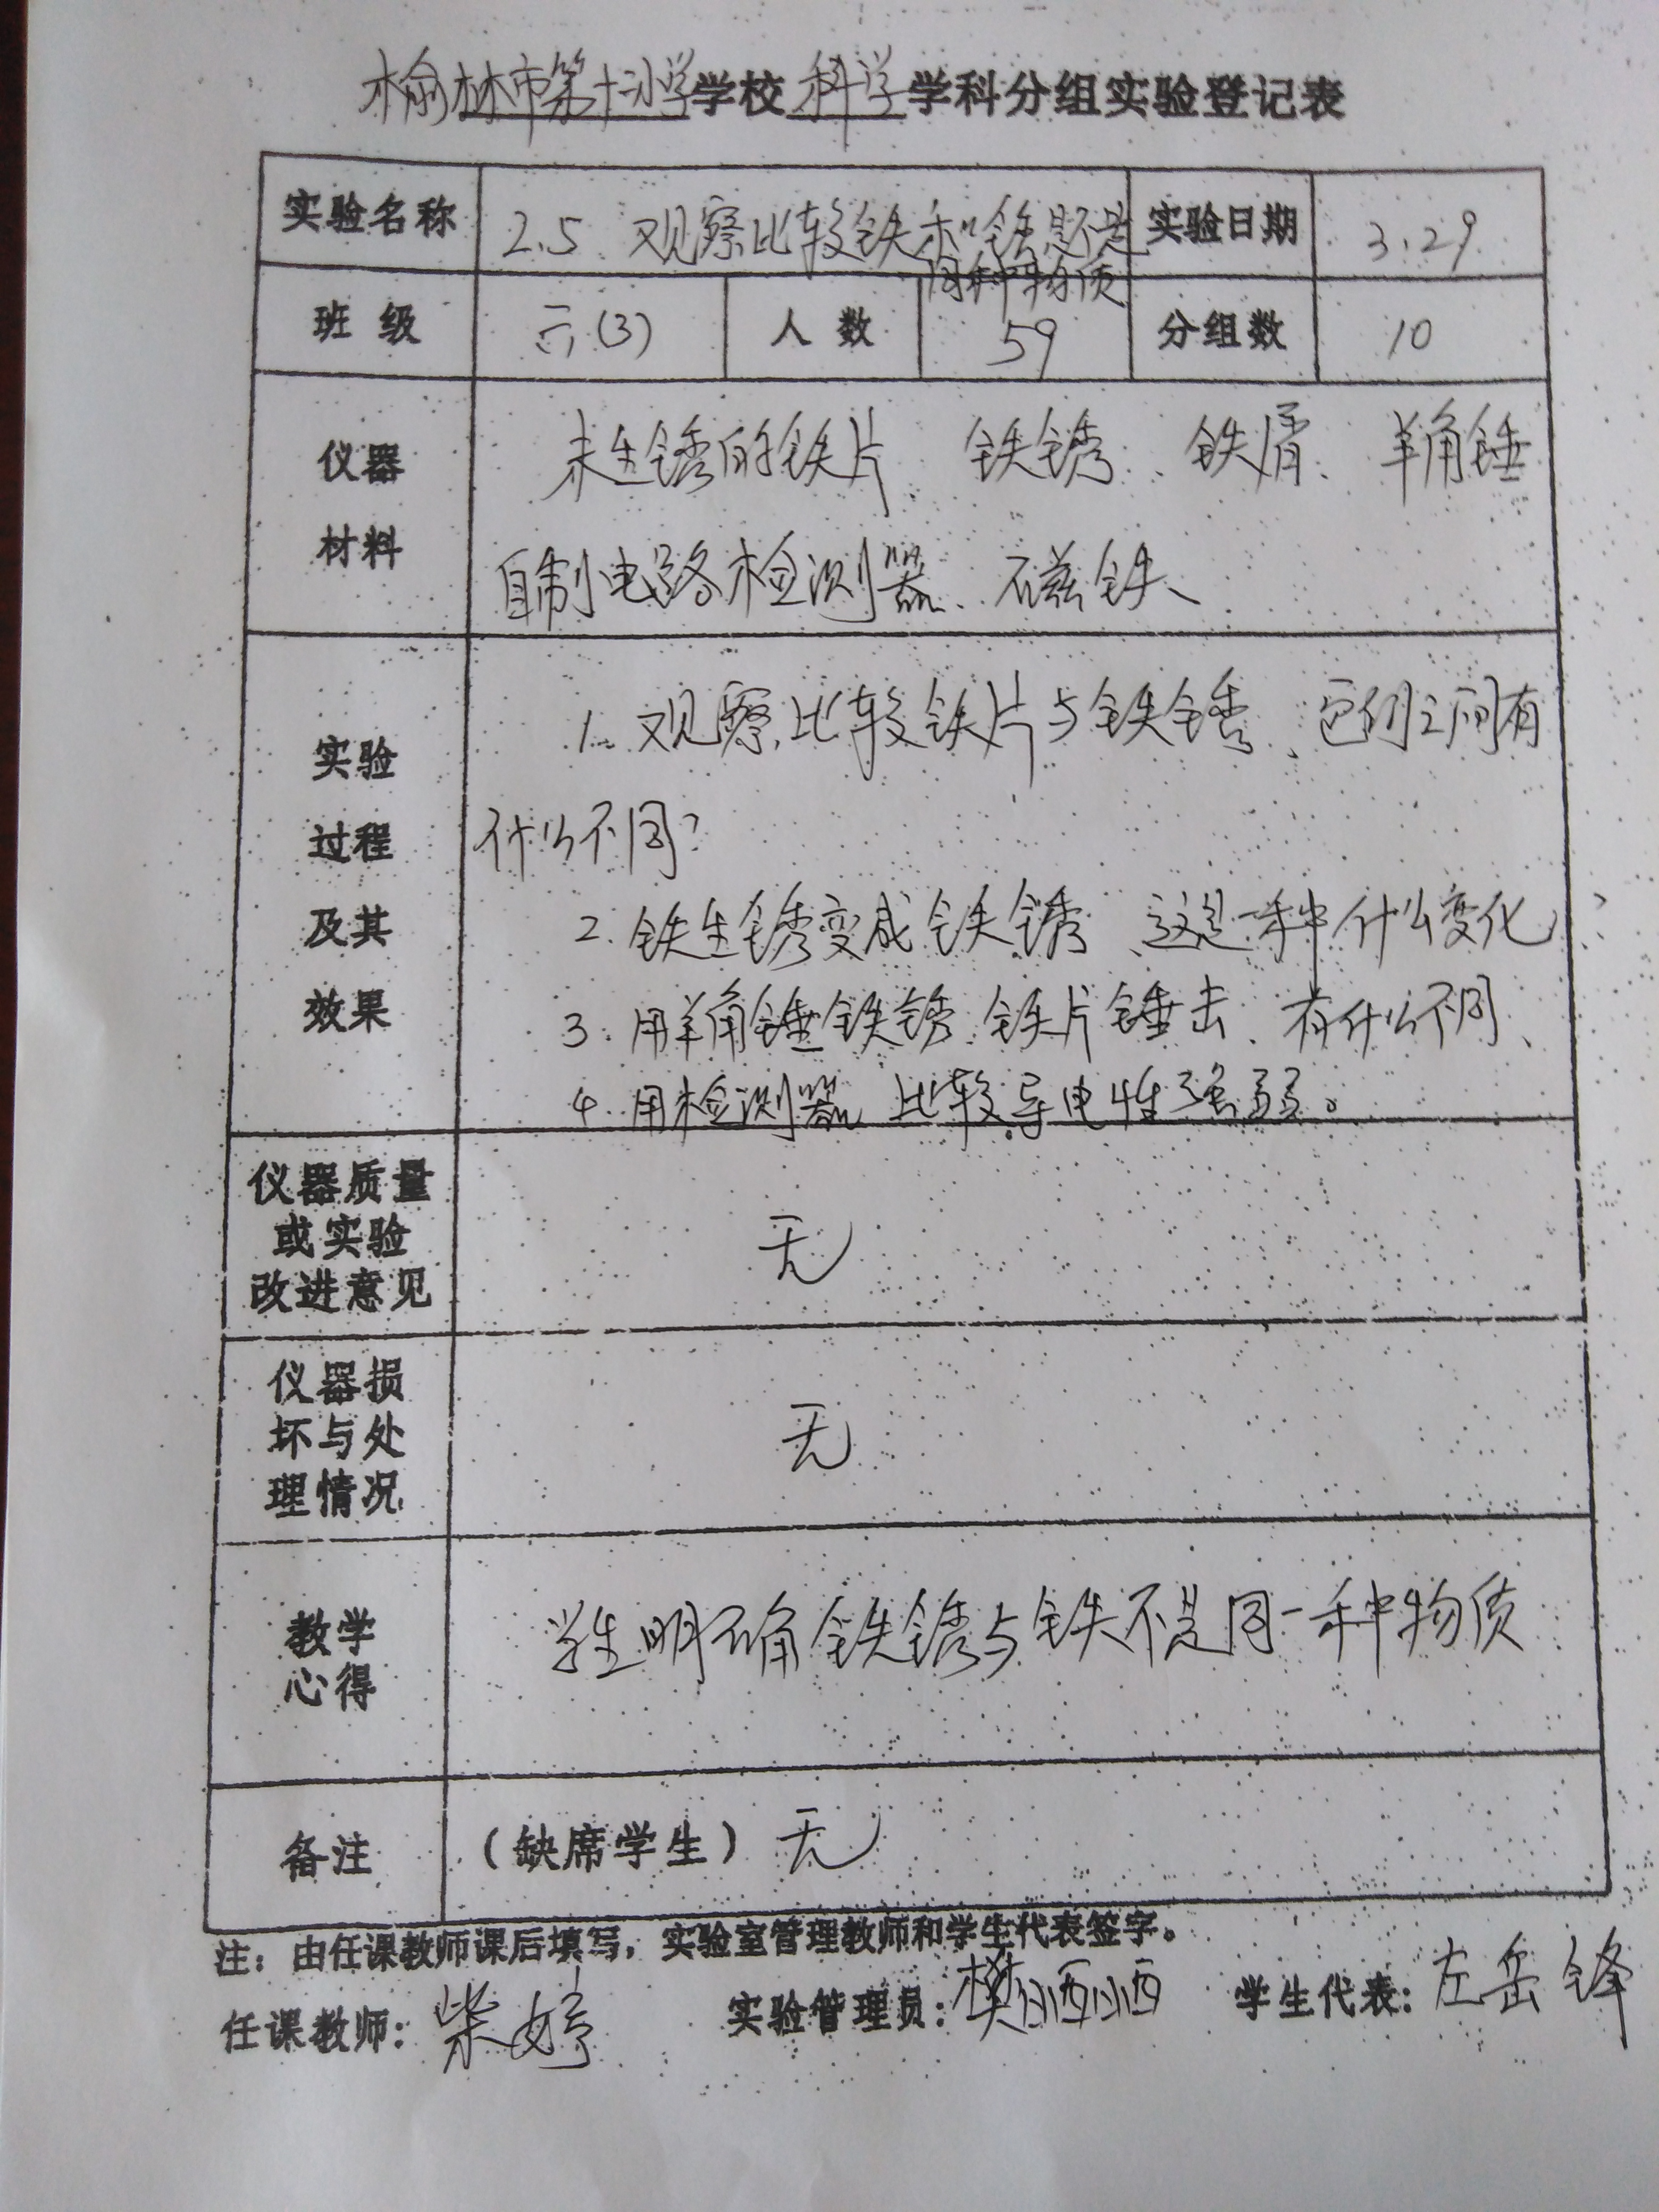 榆林市第十二小学学校科学学科分组实验登记表
实验名称 2.5 观察比较铁和铁锈是不是同种物质 实验日期 3.29
班级 六(3) 人数 59 分组数 10
仪器材料
未生锈的铁片、铁锈、铁屑、羊角锤
自制电路检测器、磁铁、
实验过程及其效果
1. 观察,比较铁片与铁锈、它们之间有
什么不同?
2. 铁生锈变成铁锈、这是一种什么变化?
3. 用羊角锤铁锈、铁片锤击、有什么不同、
4. 用检测器 比较导电性强弱。
仪器质量
或实验
改进意见
无
仪器损
坏与处
理情况
无
教学
心得
学生明确铁锈与铁不是同一种物质
备注 (缺席学生) 无
注:由任课教师课后填写,实验室管理教师和学生代表签字。
任课教师:柴婷 实验管理员:樊洒洒 学生代表:左岳锋